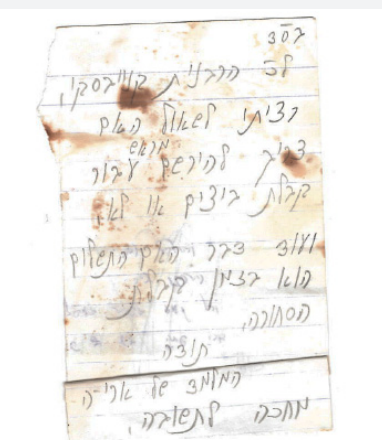 בסד
לכ׳ הרבנית קוייבסקי,
רציתי לשאול האם
מראש
צריך להירשם עבור
קבלת ביצים או לא,
ועוד דבר האם התשלום
הוא בזמן קבלת
הסחורה.
תודה
המלמד של אריה
מחכה לתשובה.